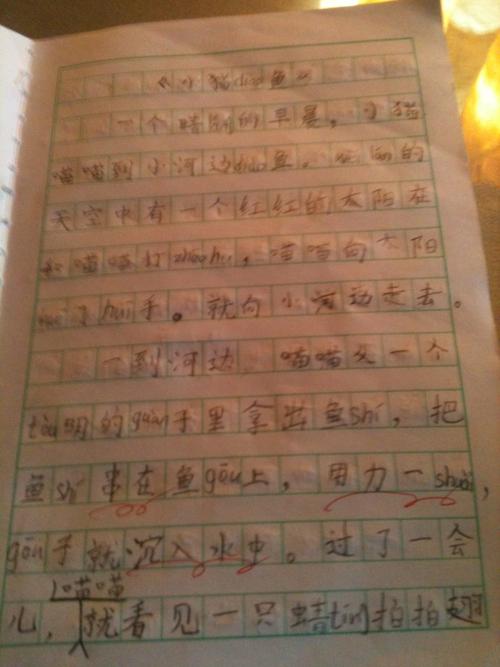 《小猫diào鱼》
一个晴朗的早晨，小猫
喵喵到小河边diào鱼。的
天空中有一个红红的太阳在
和喵喵打zhāohu，喵喵向太阳
了huī手。就向小河边走去。
一到河边喵喵从一个
tòu明的guàn子里拿出鱼shí，把
鱼shí串在鱼gōu上，用力一shuǎi，
gōu子就沉入水中。过了一会
儿，喵喵就看见一只蜻tíng拍拍翅